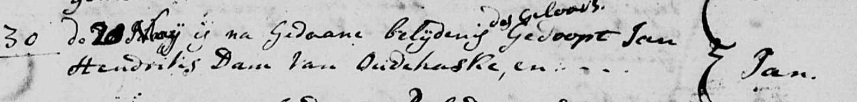 30 de 20 May is na Gedaane belydenis des Geloofs Gedoopt Jan
Hendriks Dam van Oudehaske, en - - - - Jan.